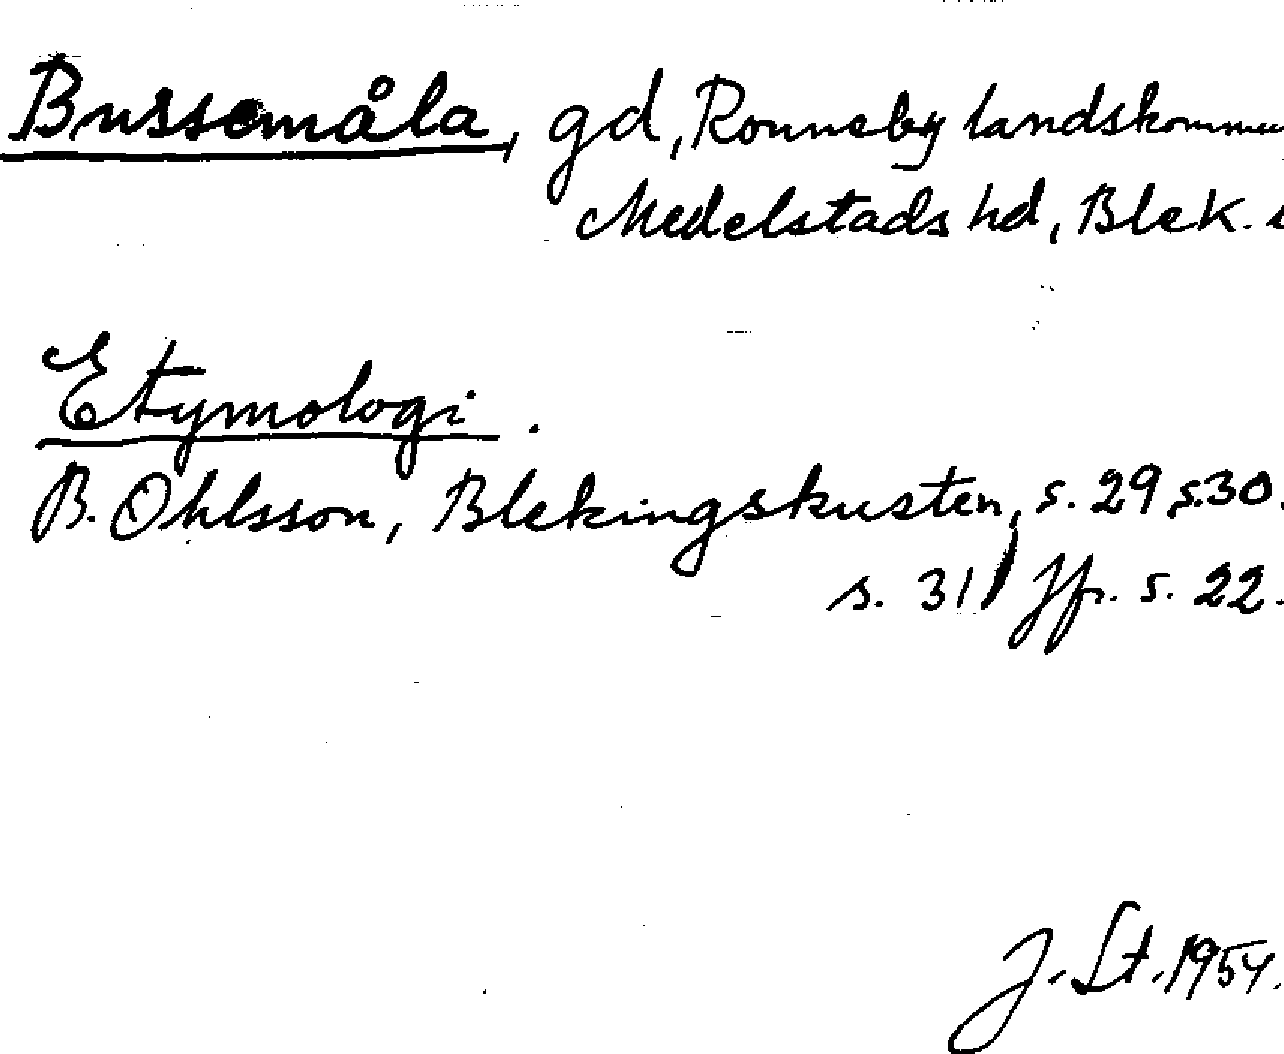 Bussemåla, gd, Ronneby landskommun
Medelstads hd, Blek.
Etymologi.
B. Ohlsson, Blekingskusten, s. 29, s. 30.
s. 31, Jfr. s. 22.
J. St. 1954.